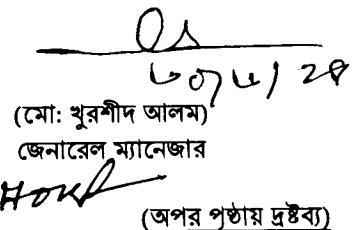 (মো: খুরশীদ আলম)
জেনারেল ম্যানেজার
(অপর পৃষ্ঠায় দ্রষ্টব্য)